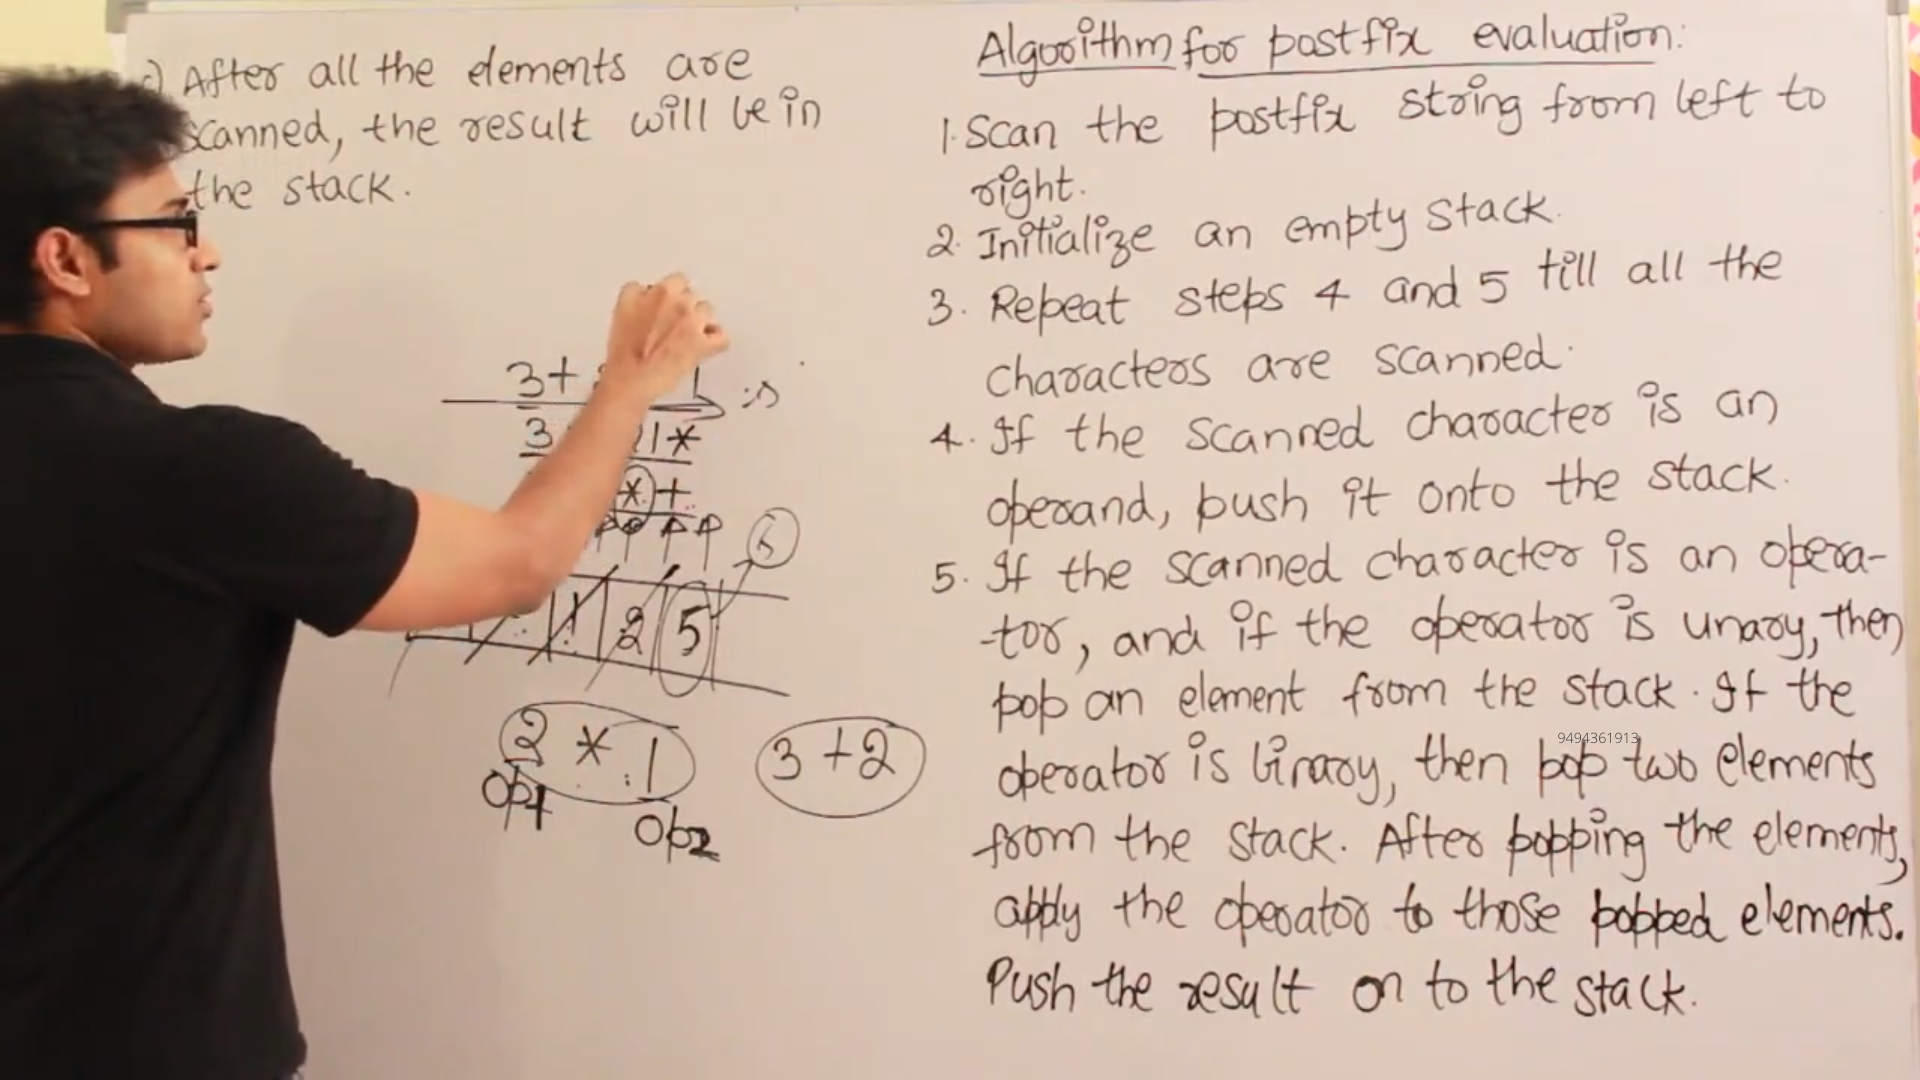 After all the elements are
scanned, the result will be in
the stack.
3+ 1
3 1*
*+
1 2 5
5
2 * 1
3+2
Op1
Op2
Algorithm for postfix evaluation:
1. Scan the postfix string from left to
right.
2. Initialize an empty stack.
3. Repeat steps 4 and 5 till all the
characters are scanned.
4. If the scanned character is an
operand, push it onto the stack.
5. If the scanned character is an opera-
-tor, and if the operator is unary, then
pop an element from the stack. If the
operator is binary, then pop two elements
from the stack. After popping the elements,
apply the operator to those popped elements.
Push the result on to the stack.
9494361913